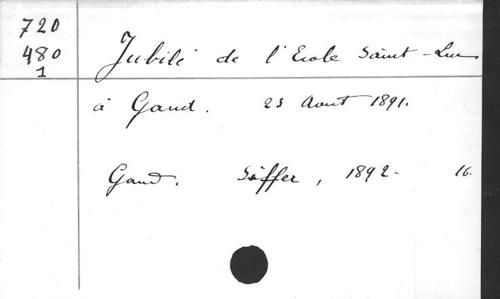 720
480
1
Jubilé de l'Ecole Saint-Luc
à Gand. 23 Aout 1891.
Gand. Siffer, 1892. 16.